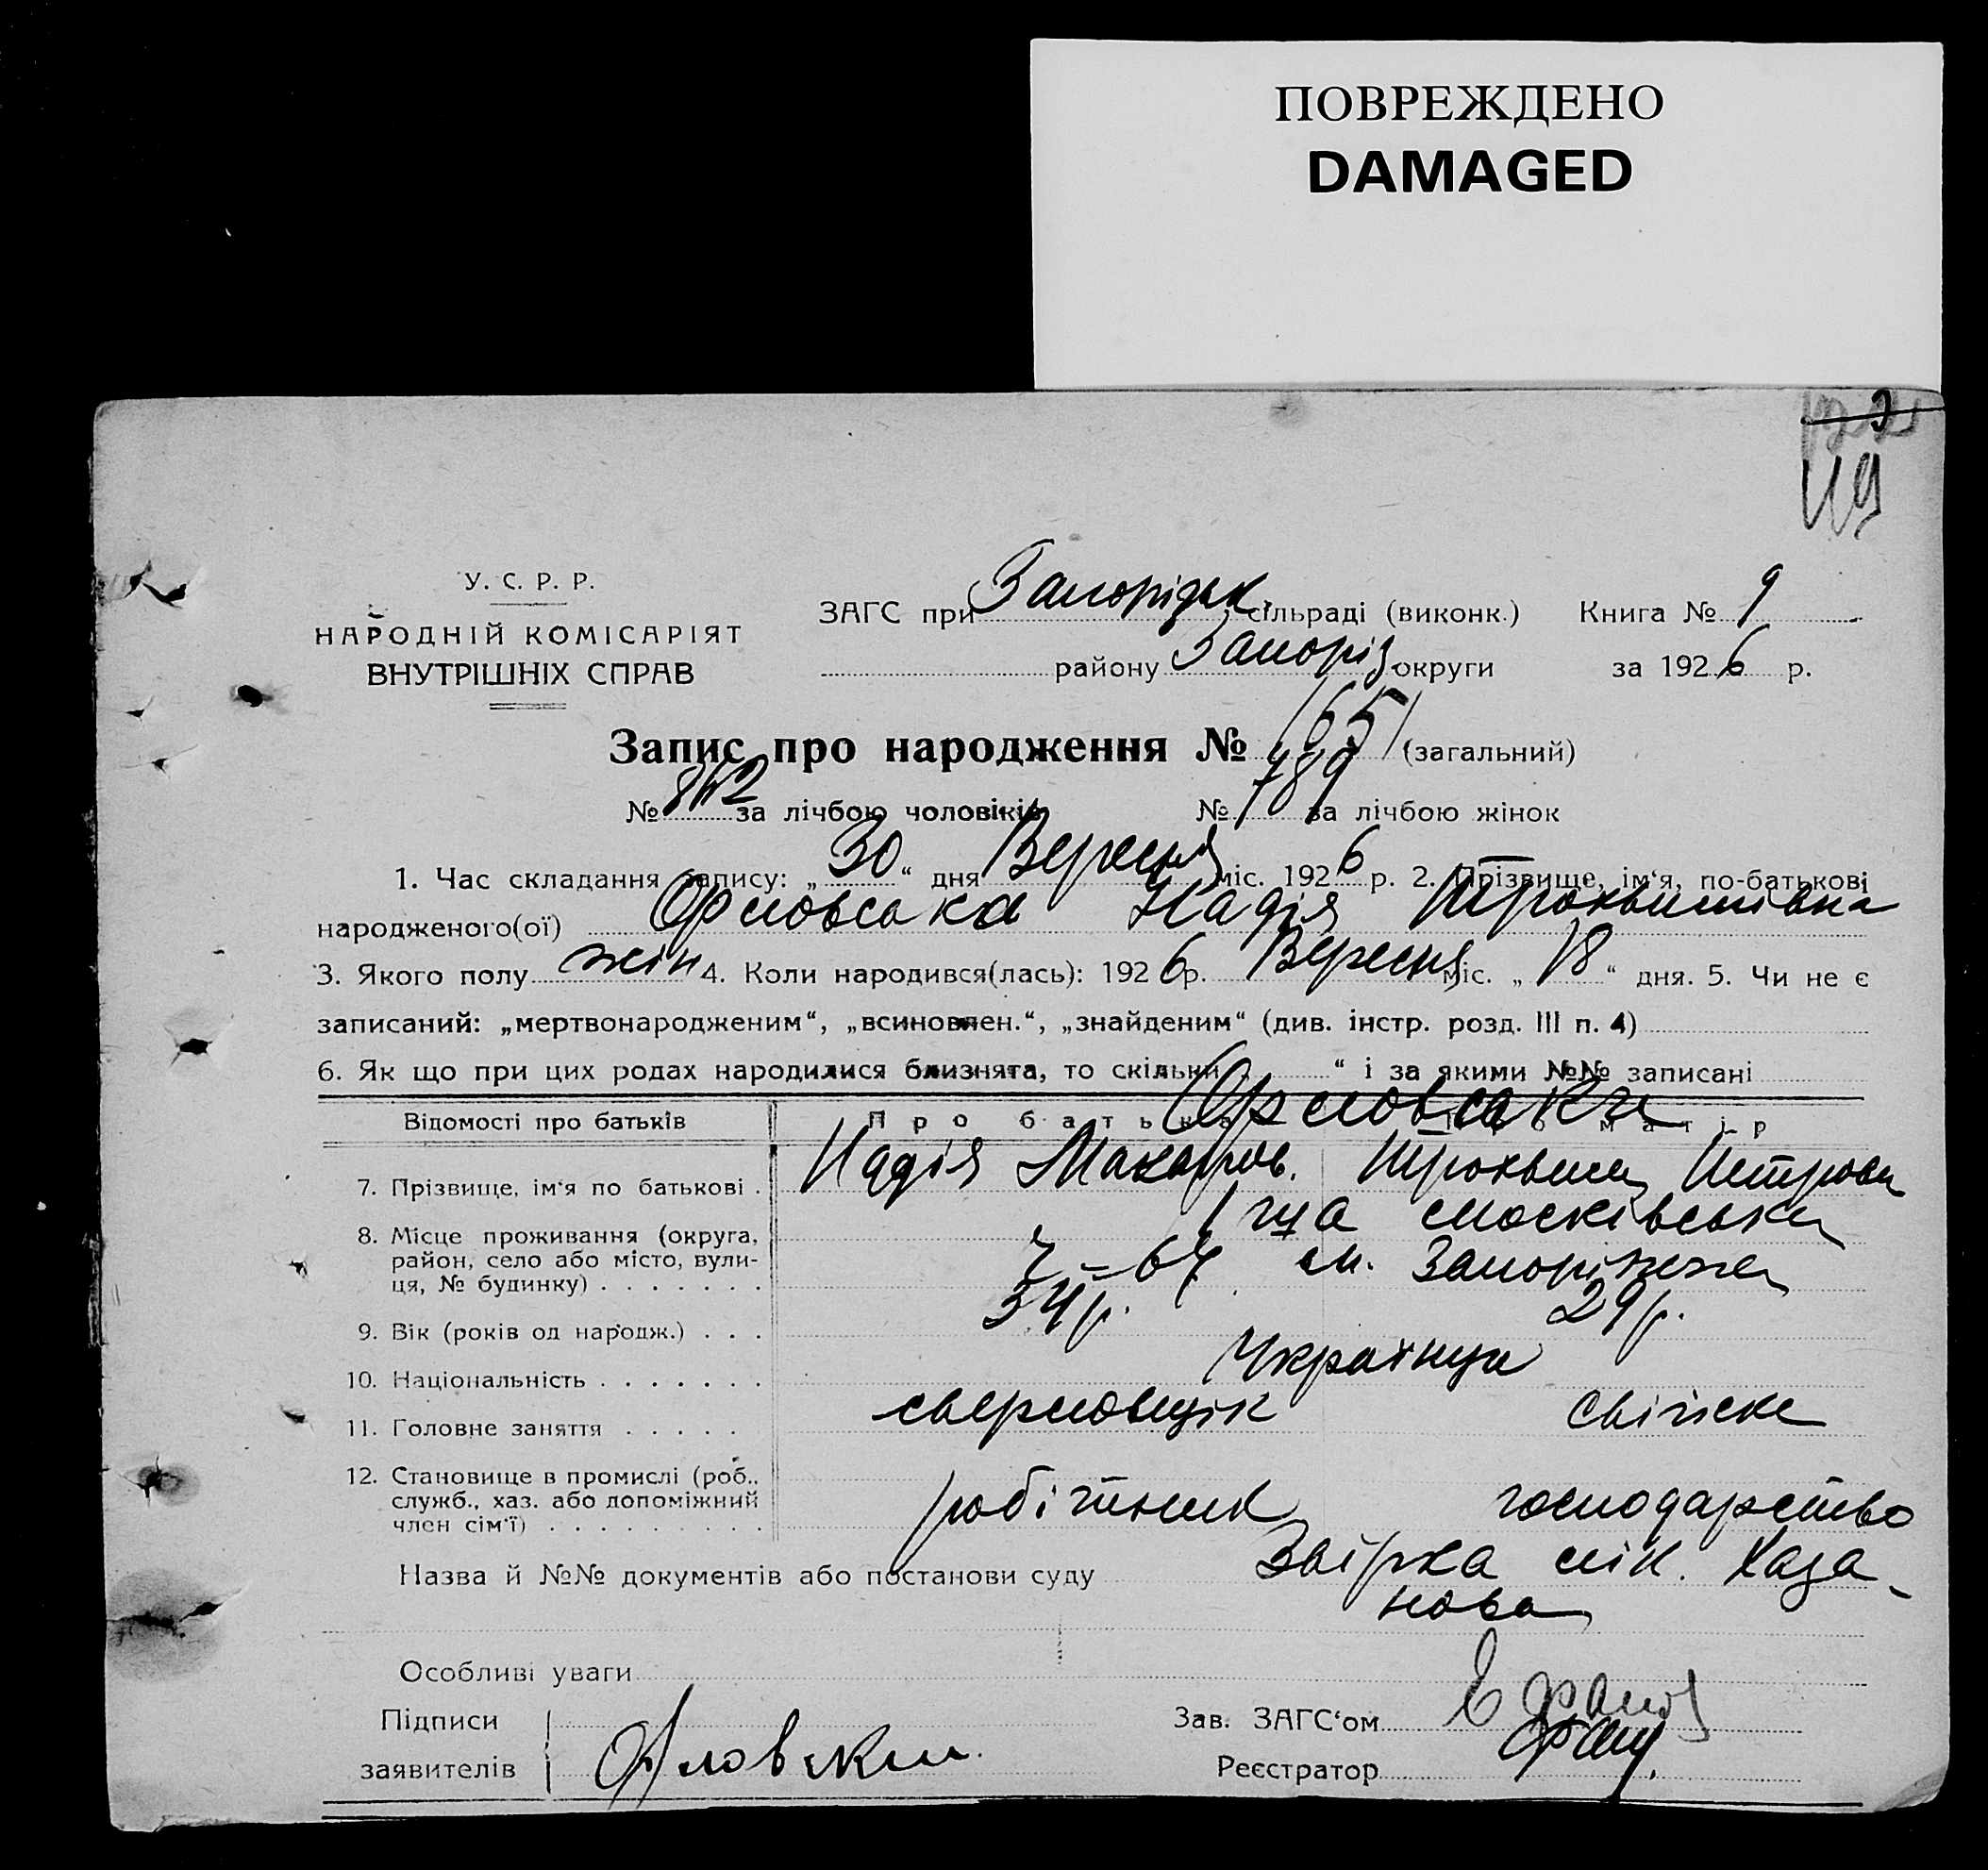 ПОВРЕЖДЕНО
DAMAGED
119
У. С. Р. Р.
НАРОДНІЙ КОМІСАРІЯТ
ВНУТРІШНІХ СПРАВ
ЗАГС при Запорізьк. сільраді (виконк.) Книга № 9
району Запоріз. округи за 1926 р.
Запис про народження № 1651 (загальний)
№ 862 за лічбою чоловіків № 789 за лічбою жінок
1. Час складання запису: „30“ дня Вересня міс. 1926 р. 2. Прізвище, ім'я, по-батькові
народженого(ої) Орловська Надія Трохвимівна
3. Якого полу жін 4. Коли народився(лась): 1926 р. Вересня міс. „18“ дня. 5. Чи не є
записаний: „мертвонародженим“, „всиновлен.“, „знайденим“ (див. інстр. розд. III п. 4)
6. Як що при цих родах народилися близнята, то скільки „ “ і за якими №№ записані
Орловськи
Відомості про батьків Про батька Про матір
7. Прізвище, ім'я по батькові . Надія Макаров. Трохвим Петрови
8. Місце проживання (округа, московська
район, село або місто, вули- 7 – 64 м. Запоріжжя
ця, № будинку) . . . . . . .
9. Вік (років од народж.) . . . 34 р. 29 р.
10. Національність . . . . . . . Українци
11. Головне заняття . . . . . сверловщік свійске
12. Становище в промислі (роб.,
служб., хаз. або допоміжний робітник господарство
член сім'ї) . . . . . . . . .
Назва й №№ документів або постанови суду Звірка лік. Хаза-
нова
Особливі уваги
Підписи
заявителів Орловский
Зав. ЗАГС'ом
Реєстратор